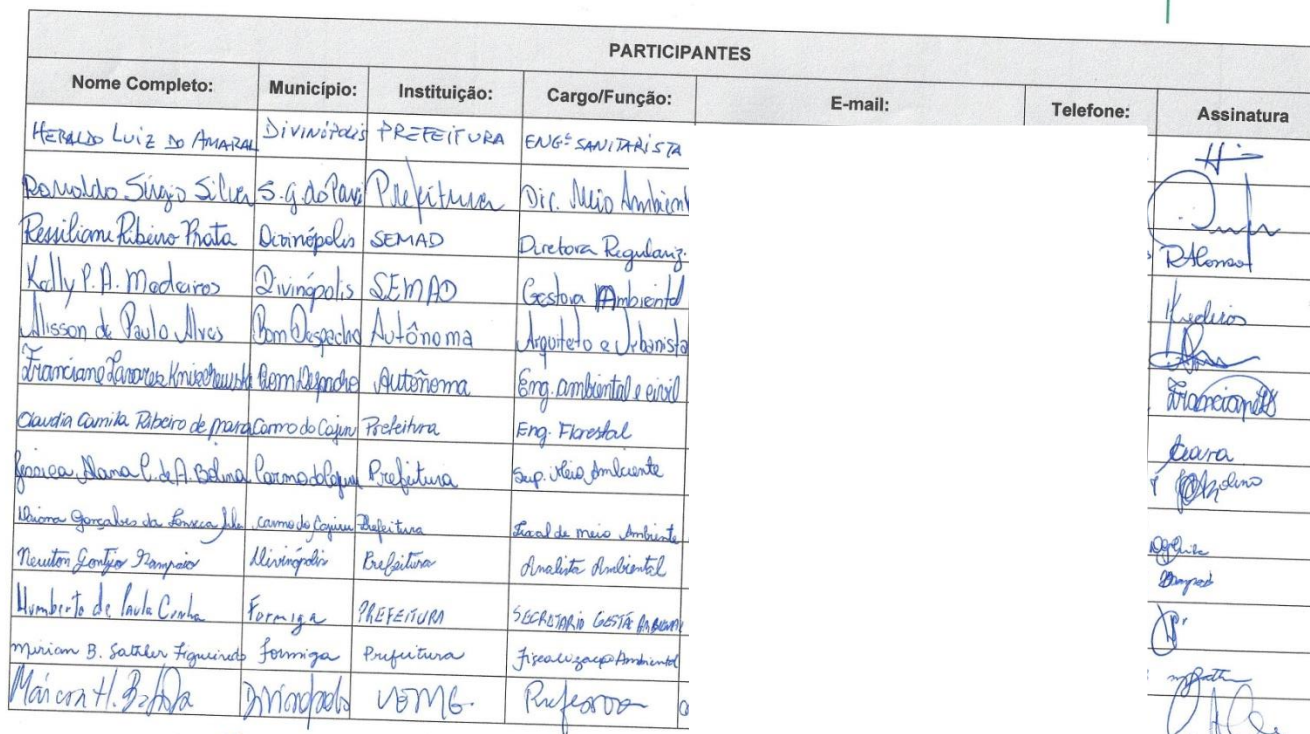 PARTICIPANTES
Nome Completo: Município: Instituição: Cargo/Função: E-mail: Telefone: Assinatura
HERALDO LUIZ DO AMARAL DIVINÓPOLIS PREFEITURA ENGº SANITARISTA
Ronaldo Sérgio Silva S.G. do Pará Prefeitura Dir. Meio Ambient
Ressiliane Ribeiro Prata Divinópolis SEMAD Diretora Regulariz. RAlonso
Kelly P. A. Medeiros Divinópolis SEMAD Gestora Ambiental Medeiros
Alisson de Paulo Alves Bom Despacho Autônoma Arquiteto e Urbanista
Franciane Tavares Bom Despacho Autônoma Eng. ambiental e civil
Claudia Camila Ribeiro de Carmo do Cajuru Prefeitura Eng. Florestal
Jéssica C. de A. Carmo do Cajuru Prefeitura Sup. Meio Ambiente
Gonçalves da Fonseca Carmo do Cajuru Prefeitura Fiscal de meio Ambiente
Newton Gontijo Sampaio Divinópolis Prefeitura Analista Ambiental
Humberto de Paula Cunha Formiga PREFEITURA SECRETARIO GESTÃ AMBIENTAL
Miriam B. Sathler Figueiredo formiga Prefeitura Fiscalização Ambiental
H. Divinópolis UEMG. Professor